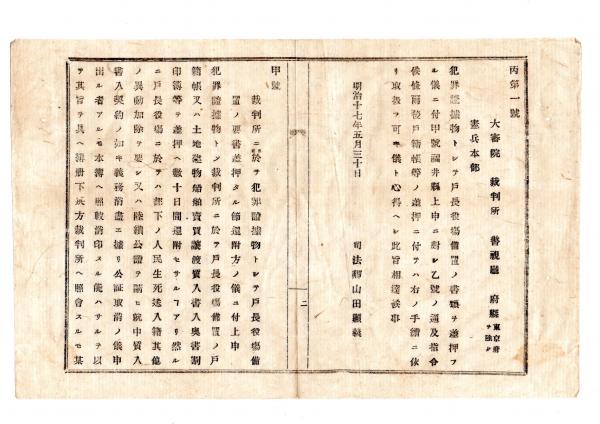 丙第一號
大審院 裁判所 警視廳 府縣東京府ヲ除ク
憲兵本部
犯罪證據物トシテ戸長役場備置ノ書類ヲ差押フ
ル儀ニ付甲號福井縣上申ニ對シ乙號ノ通及指令
候條爾後戸籍帳等ノ差押ニ付テハ右ノ手續ニ依
リ取扱フ可キ儀ト心得ヘシ此旨相達候事
明治十七年五月三十日
司法卿山田顯義
二
甲號
裁判所ニ於テ犯罪證據物トシテ戸長役場備
置ノ要書差押タル節還附方ノ儀ニ付上申
犯罪證據物トシ裁判所ニ於テ戸長役場備置ノ戸
籍帳又ハ土地建物船舶賣買讓渡質入書入奥書割
印簿等ヲ差押ヘ數十日間還附セサルアリ然ル
ニ戸長役場ニ於テハ部下ノ人民生死送入籍其他
ノ異動加除ヲ要シ又ハ陸續公證ヲ請ヒ就中質入
書入契約ノ如キ義務消盡ニ據リ公証取消ノ儀申
出ル者アルモ本簿ヘ照較消印スル能ハサルヲ以
ヲ其旨ヲ具ヘ簿册下戻方裁判所ヘ照會スルモ某